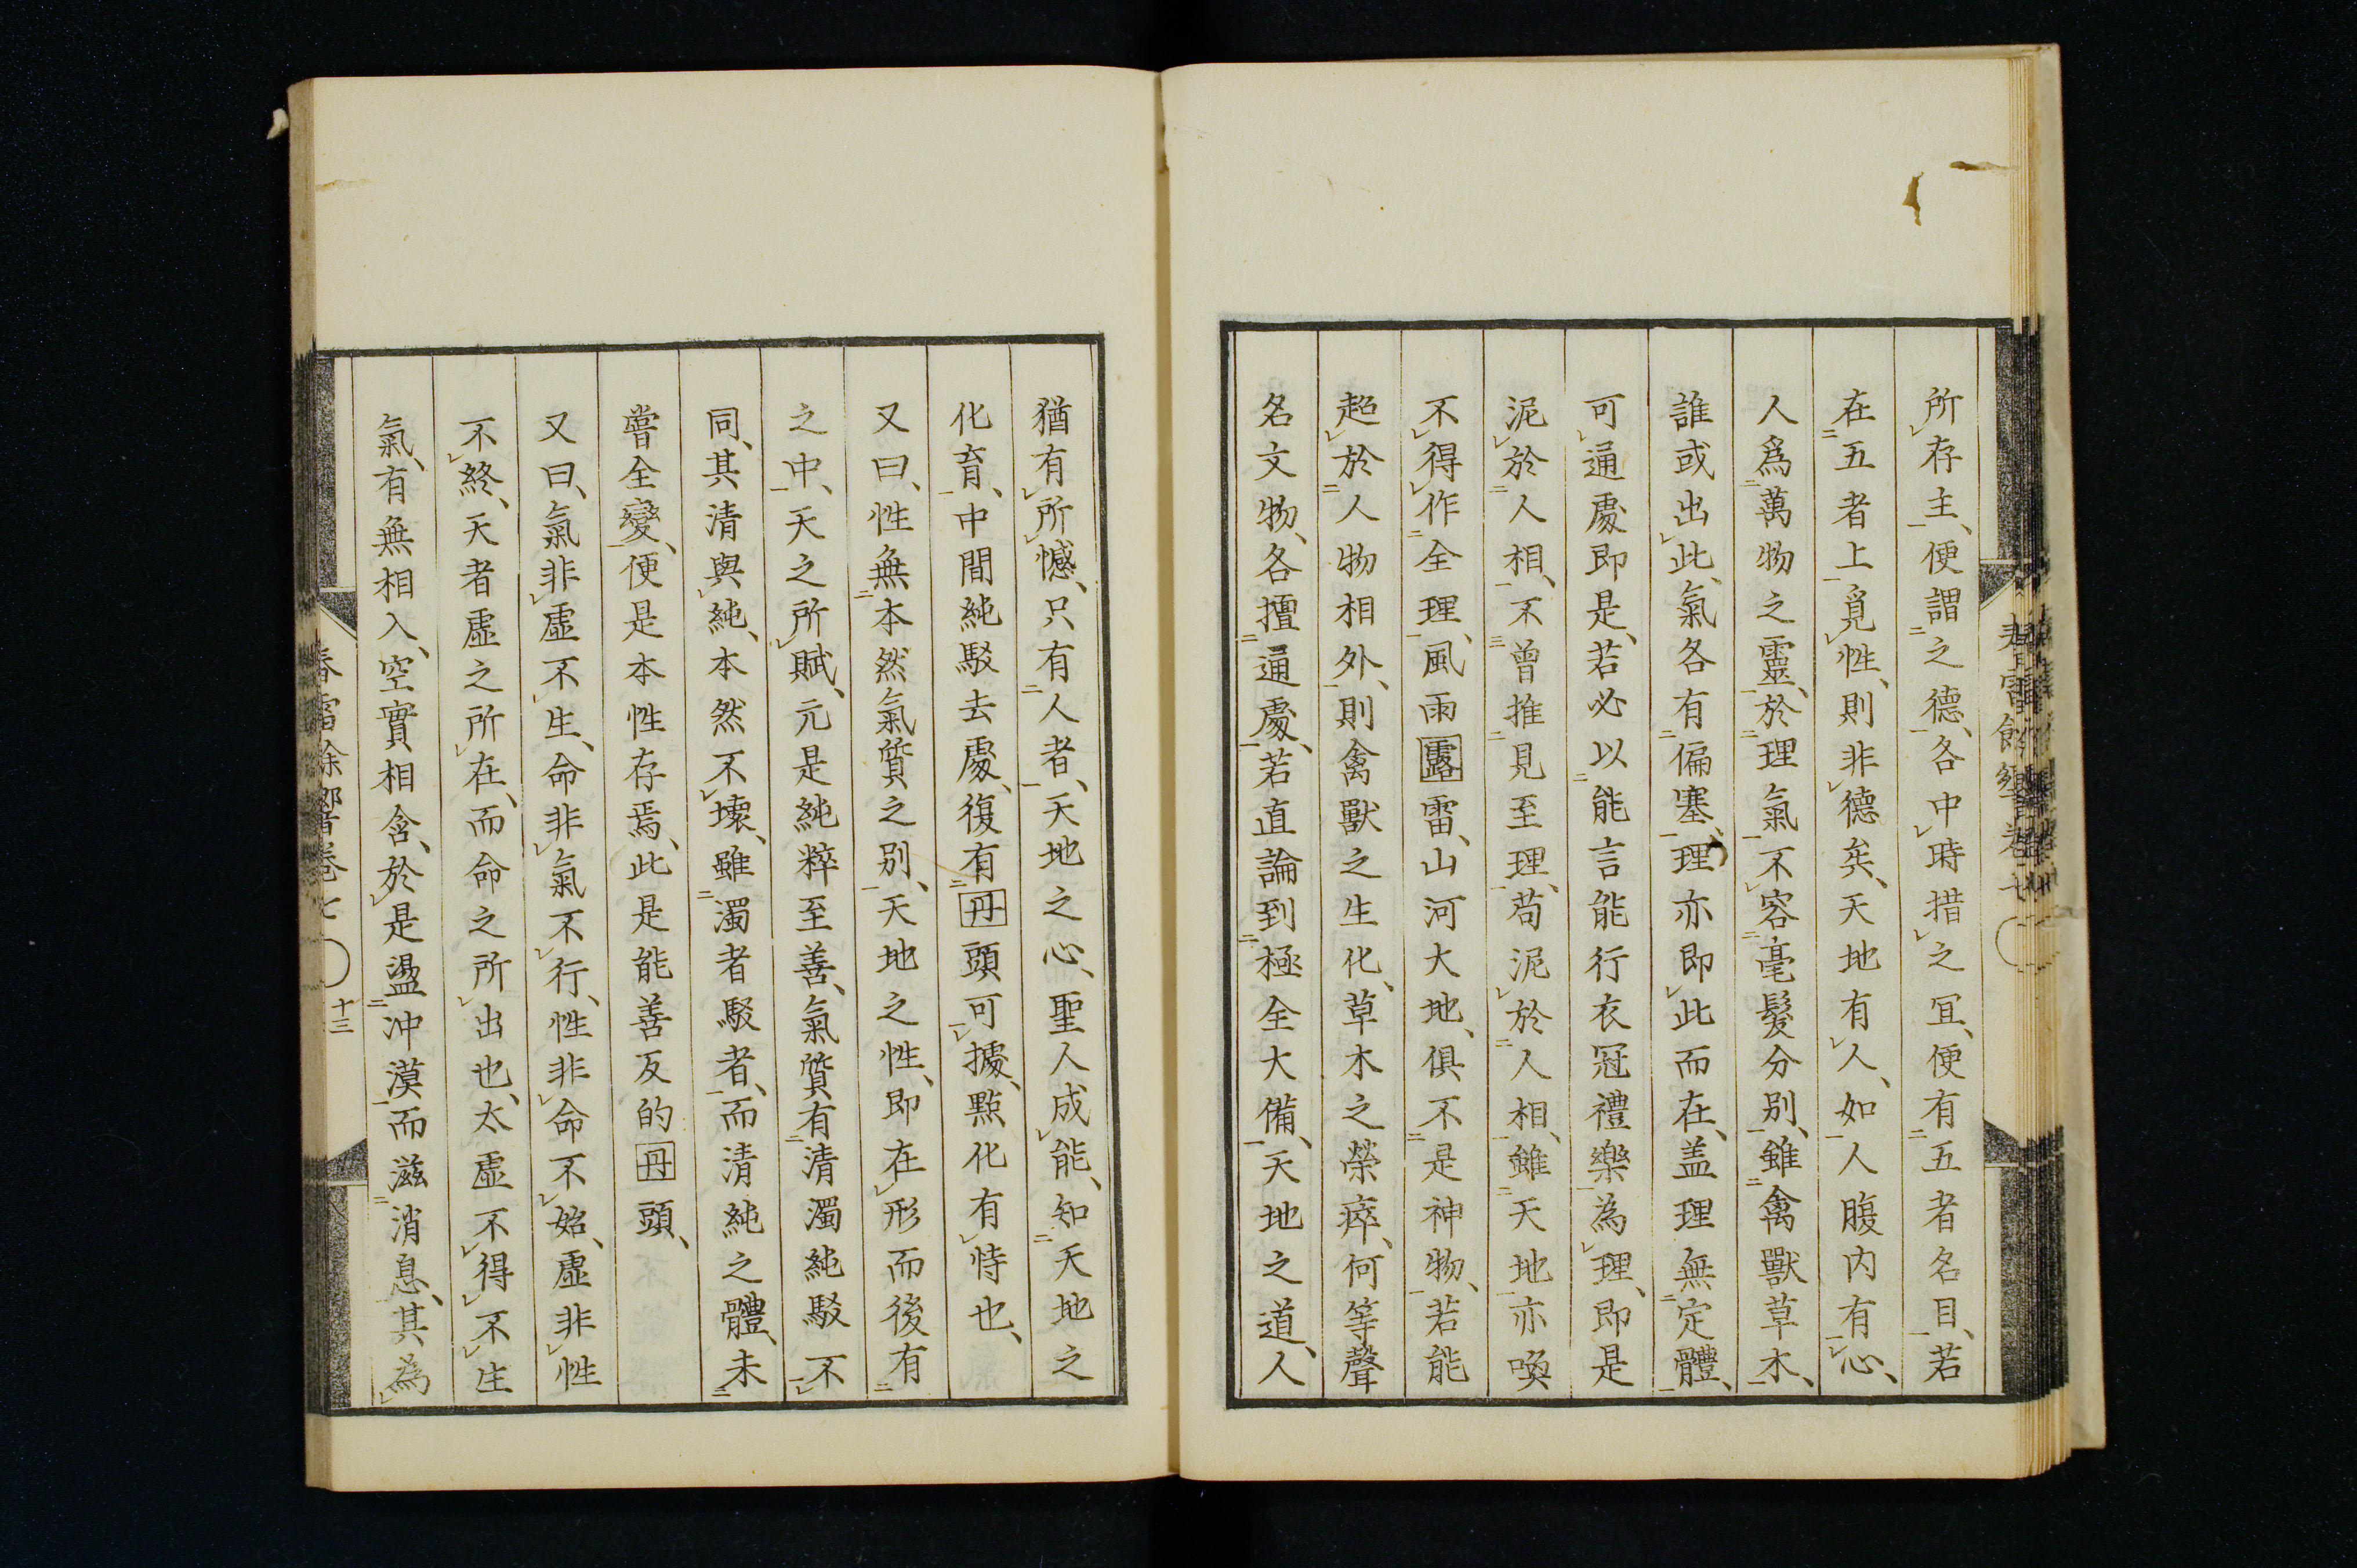 所存主、便謂之德、各中時措之冝、便有五者名目、若
在五者上覓性、則非德矣、天地有人、如人腹内有心、
人爲萬物之靈、於理氣不容毫髮分別、雖禽獸草木、
誰或出此、氣各有偏塞、理亦即此而在、盖理無定體、
可通處即是、若必以能言能行衣冠禮樂為理、即是
泥於人相、不曾推見至理、苟泥於人相、雖天地亦喚
不得作全理、風雨露雷、山河大地、俱不是神物、若能
超於人物相外、則禽獸之生化、草木之榮瘁、何等聲
名文物、各擅通處、若直論到極全大備、天地之道、人
猶有所憾、只有人者、天地之心、聖人成能、知天地之
化育、中間純駁去處、復有丹頭可據、點化有恃也、
又曰、性無本然氣質之别、天地之性、即在形而後有
之中、天之所賦、元是純粹至善、氣質有清濁純駁不
同、其清與純、本然不壞、雖濁者駁者、而清純之體、未
嘗全變、便是本性存焉、此是能善反的丹頭、
又曰、氣非虛不生、命非氣不行、性非命不始、虛非性
不終、天者虛之所在、而命之所出也、太虛不得不生
氣、有無相入、空實相含、於是盪冲漠而滋消息、其為
春雷餘響卷七
十三